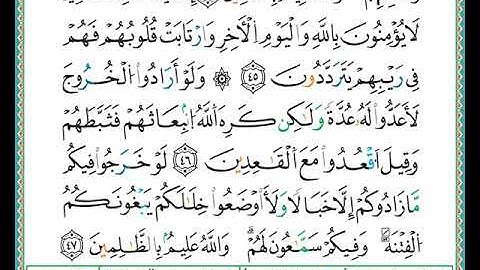 لَا يُؤْمِنُونَ بِٱللَّهِ وَٱلْيَوْمِ ٱلْـَٔاخِرِ وَٱرْتَابَتْ قُلُوبُهُمْ فَهُمْ
فِى رَيْبِهِمْ يَتَرَدَّدُونَ ٤٥ ۞ وَلَوْ أَرَادُوا۟ ٱلْخُرُوجَ
لَأَعَدُّوا۟ لَهُۥ عُدَّةً وَلَـٰكِن كَرِهَ ٱللَّهُ ٱنۢبِعَاثَهُمْ فَثَبَّطَهُمْ
وَقِيلَ ٱقْعُدُوا۟ مَعَ ٱلْقَـٰعِدِينَ ٤٦ لَوْ خَرَجُوا۟ فِيكُم
مَّا زَادُوكُمْ إِلَّا خَبَالًا وَلَأَوْضَعُوا۟ خِلَـٰلَكُمْ يَبْغُونَكُمُ
ٱلْفِتْنَةَ وَفِيكُمْ سَمَّـٰعُونَ لَهُمْ ۗ وَٱللَّهُ عَلِيمٌۢ بِٱلظَّـٰلِمِينَ ٤٧